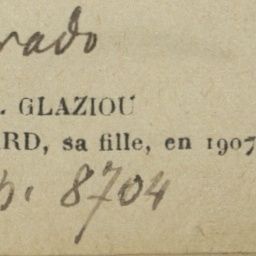 rado
. GLAZIOU
ARD, sa fille, en 1907
p. 8704